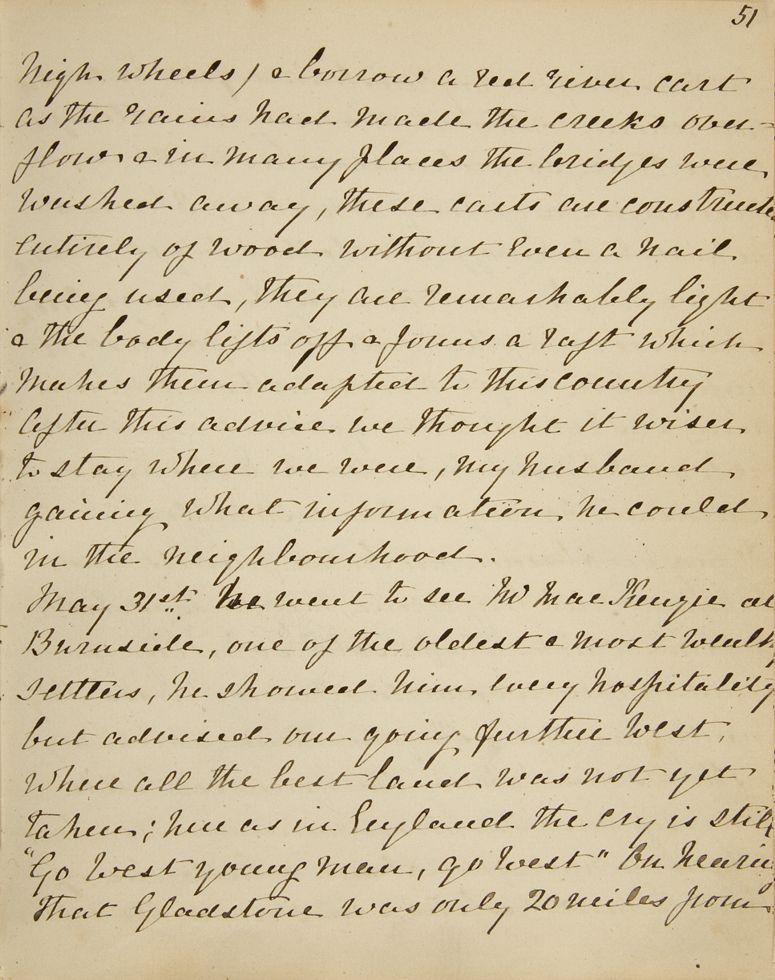 51
high wheels) & borrow a red river cart
as the rains had made the creeks over=
flow & in many places the bridges were
washed away, these carts are constructed
entirely of wood without even a nail
being used, they are remarkably light
& the body lifts off & forms a raft which
makes them adapted to this country
After this advice we thought it wiser
to stay where we were, my husband
gaining what information he could
in the neighbourhood.
May 31st he went to see Mr MacKenzie at
Burnside, one of the oldest & most wealthy
settlers, he showed him every hospitality
but advised our going further West,
where all the best land was not yet
taken; here as in England the cry is still
"Go West young man, go West" On hearing
that Gladstone was only 20 miles from